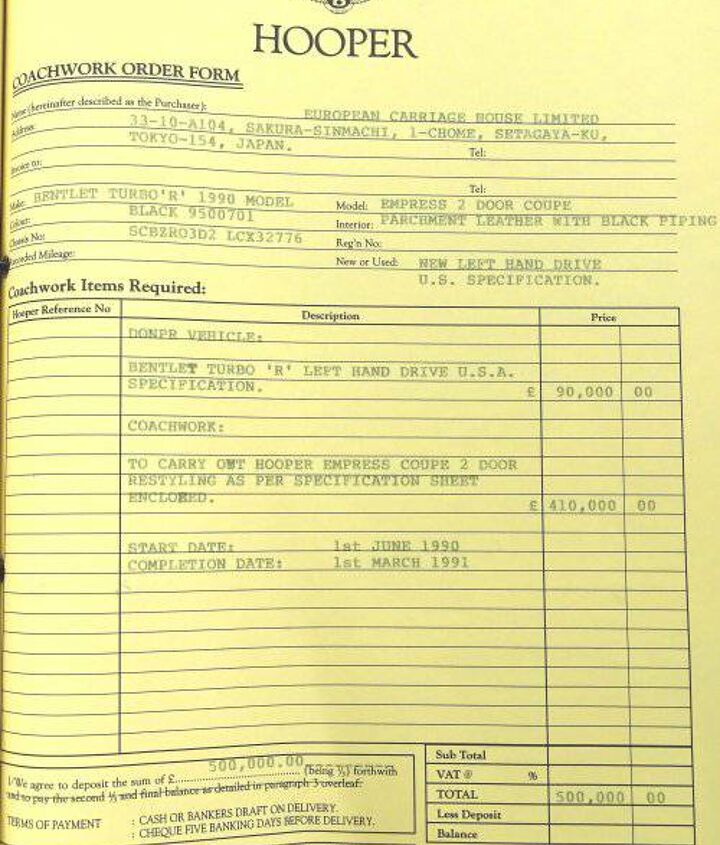 HOOPER
COACHWORK ORDER FORM
Name (hereinafter described as the Purchaser): EUROPEAN CARRIAGE HOUSE LIMITED
Address: 33-10-A104, SAKURA-SINMACHI, 1-CHOME, SETAGAYA-KU,
TOKYO-154, JAPAN. Tel:
Invoice to:
Tel:
Make: BENTLET TURBO'R' 1990 MODEL Model: EMPRESS 2 DOOR COUPE
Colour: BLACK 9500701 Interior: PARCHMENT LEATHER WITH BLACK PIPING
Chassis No: SCBZRO3D2 LCX32776 Reg'n No:
Recorded Mileage: New or Used: NEW LEFT HAND DRIVE
U.S. SPECIFICATION.
Coachwork Items Required:
Hooper Reference No Description Price
DONPR VEHICLE:
BENTLET TURBO 'R' LEFT HAND DRIVE U.S.A.
SPECIFICATION. £ 90,000 00
COACHWORK:
TO CARRY OUT HOOPER EMPRESS COUPE 2 DOOR
RESTYLING AS PER SPECIFICATION SHEET
ENCLOSED. £ 410,000 00
START DATE: 1st JUNE 1990
COMPLETION DATE: 1st MARCH 1991
Sub Total
VAT @ %
TOTAL 500,000 00
Less Deposit
Balance
I/We agree to deposit the sum of £ 500,000.00 (being ⅓) forthwith
and to pay the second ⅓ and final balance as detailed in paragraph 3 overleaf.
TERMS OF PAYMENT : CASH OR BANKERS DRAFT ON DELIVERY.
: CHEQUE FIVE BANKING DAYS BEFORE DELIVERY.